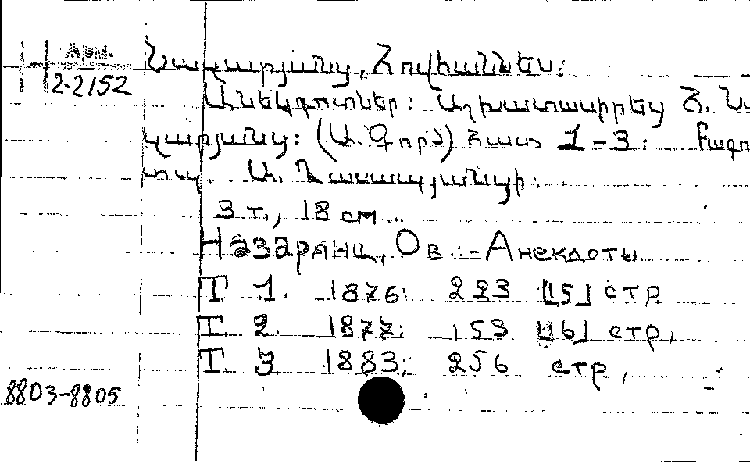 Арм.
2-2152
Նազարյանց, Հովհաննես:
Անեկդոտներ: Աշխատասիրեց Հ. Նա
զարյանց: (Ա. Գործ) Հատ 1-3:
տպ. Ա.
3 т., 18 см.
Назарянц, Ов. - Анекдоты
Т 1. 1876: 223 [15] стр
Т 2. 1877: 153 [16] стр.
Т 3 1883: 256 стр.
8803-8805